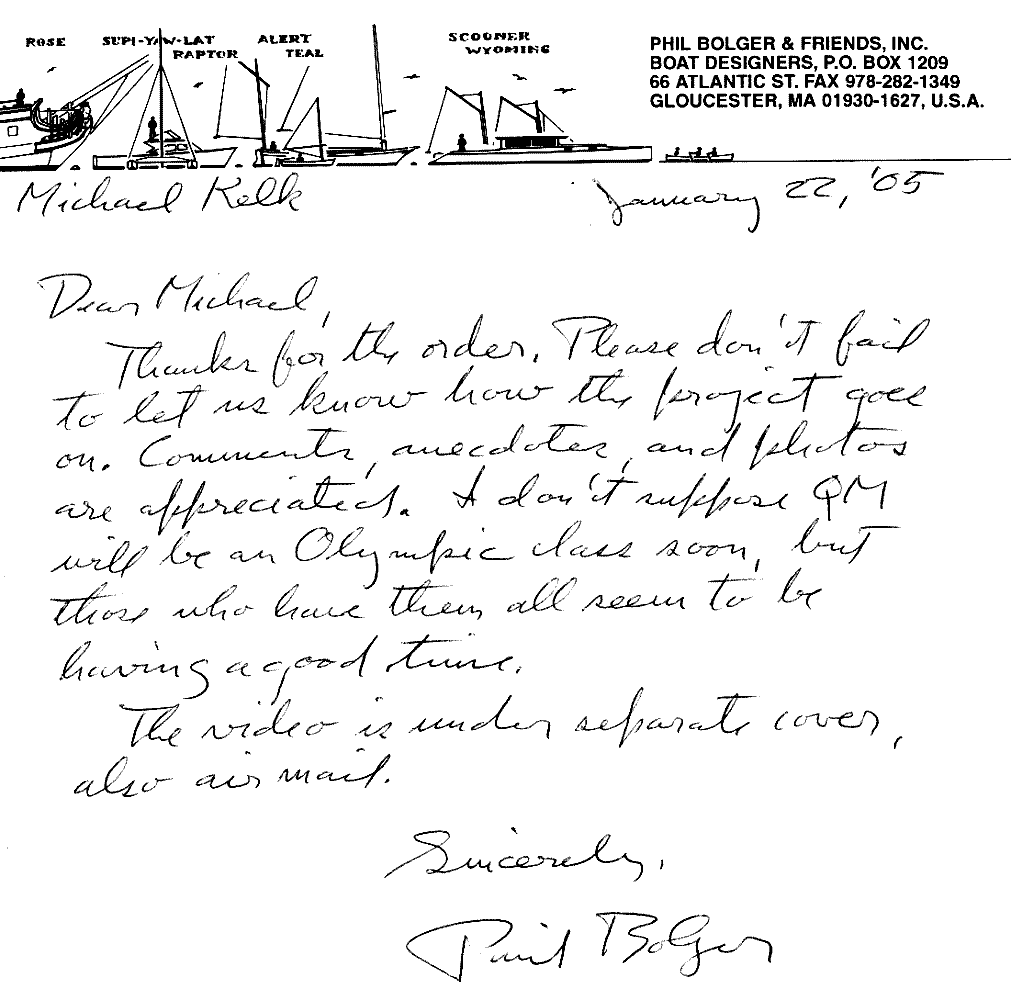 ROSE SUPI-YAW-LAT ALERT
RAPTOR TEAL
SCOONER
WYOMING
PHIL BOLGER & FRIENDS, INC.
BOAT DESIGNERS, P.O. BOX 1209
66 ATLANTIC ST. FAX 978-282-1349
GLOUCESTER, MA 01930-1627, U.S.A.
Michael Kelk
January 22, '05
Dear Michael,
Thanks for the order. Please don't fail
to let us know how the project goes
on. Comments, anecdotes, and photos
are appreciated. I don't suppose QM
will be an Olympic class soon, but
those who have them all seem to be
having a good time.
The video is under separate cover,
also air mail.
Sincerely,
Phil Bolger